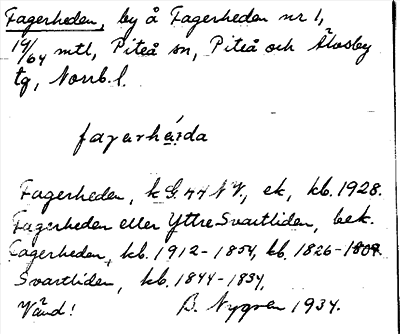 Fagerheden, by å Fagerheden nr 1,
19/64 mtl, Piteå sn, Piteå och Älvsby
tg, Norrb. l.
fagərhə́rda
Fagerheden, k G. 44 NV., ek, kb. 1928.
Fagerheden eller Yttre Svartliden, bek.
Fagerheden, kb. 1912-1854, kb. 1826-1809.
Svartliden, kb. 1844-1834,
Vänd! B. Nygren 1934.